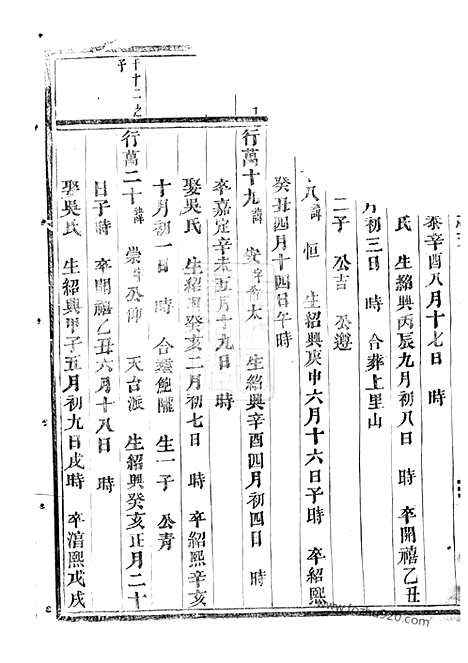 泰辛酉八月十七日　時
氏　生紹興丙辰九月初八日　時　卒開禧乙丑
月初三日　時　合葬上里山
二子　公吉　公遵
八諱　恒　生紹興庚申六月十六日子時　卒紹熙
癸丑四月十四日午時
行萬十九諱　安字　太　生紹興辛酉四月初四日　時
卒嘉定辛未五月十九日　時
娶吳氏　生紹興癸亥二月初七日　時　卒紹熙辛亥
十月初一日　時　合鮑隴　生一子　公青
行萬二十諱　崇字公仰　天台派　生紹興癸亥正月二十
日子時　卒開禧乙丑六月十八日　時
娶吳氏　生紹興甲子五月初九日戌時　卒淳熙戊戌
千十二之子
www.fozhu920.com